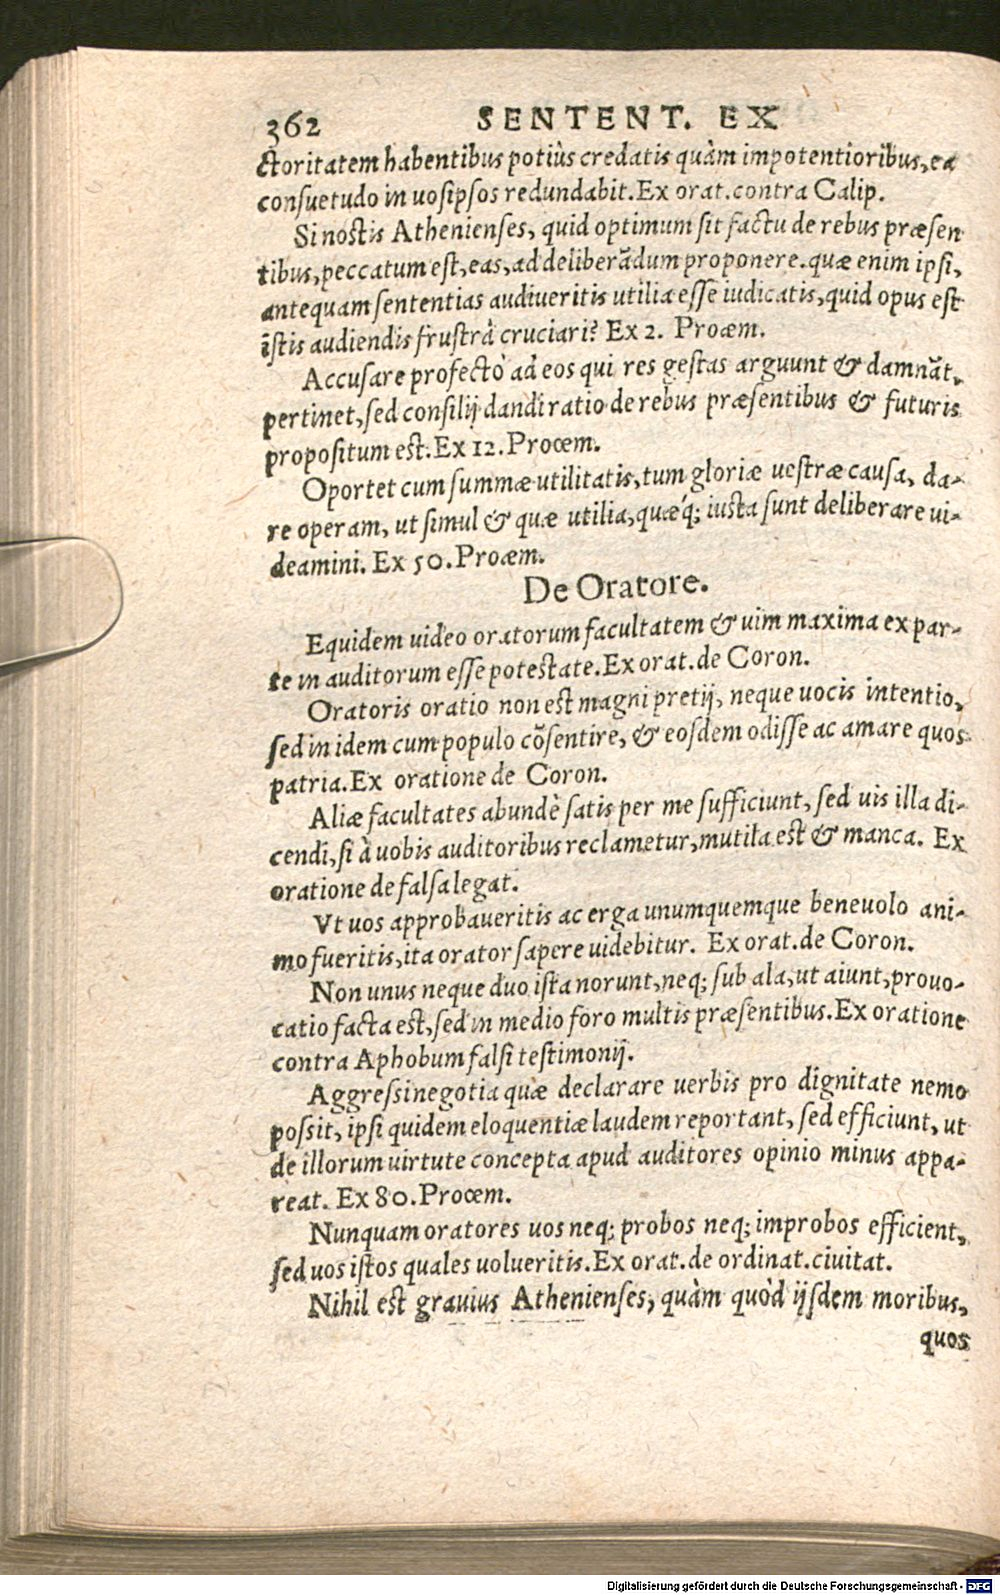 362 SENTENT. EX
ctoritatem habentibus potiùs credatis quàm impotentioribus, ea
consuetudo in uosipsos redundabit. Ex orat. contra Calip.
Si nostis Athenienses, quid optimum sit factu de rebus præsen
tibus, peccatum est, eas, ad deliberãdum proponere. quæ enim ipsi,
antequam sententias audiueritis utilia esse iudicatis, quid opus est
ĩstis audiendis frustrà cruciari? Ex 2. Proæm.
Accusare profectò ad eos qui res gestas arguunt & damnãt,
pertinet, sed consilij dandi ratio de rebus præsentibus & futuris
propositum est. Ex 12. Proœm.
Oportet cum summæ utilitatis, tum gloriæ uestræ causa, da-
re operam, ut simul & quæ utilia, quæq́; iusta sunt deliberare ui-
deamini. Ex 50. Proæm.
De Oratore.
Equidem uideo oratorum facultatem & uim maxima ex par-
te in auditorum esse potestate. Ex orat. de Coron.
Oratoris oratio non est magni pretij, neque uocis intentio,
sed in idem cum populo cõsentire, & eosdem odisse ac amare quos
patria. Ex oratione de Coron.
Aliæ facultates abundè satis per me sufficiunt, sed uis illa di-
cendi, si à uobis auditoribus reclametur, mutila est & manca. Ex
oratione de falsa legat.
Vt uos approbaueritis ac erga unumquemque beneuolo ani-
mo fueritis, ita orator sapere uidebitur. Ex orat. de Coron.
Non unus neque duo ista norunt, neq; sub ala, ut aiunt, prouo-
catio facta est, sed in medio foro multis præsentibus. Ex oratione
contra Aphobum falsi testimonij.
Aggressi negotia quæ declarare uerbis pro dignitate nemo
possit, ipsi quidem eloquentiæ laudem reportant, sed efficiunt, ut
de illorum uirtute concepta apud auditores opinio minus appa-
reat. Ex 80. Proœm.
Nunquam oratores uos neq; probos neq; improbos efficient,
sed uos istos quales uolueritis. Ex orat. de ordinat. ciuitat.
Nihil est grauius Athenienses, quàm quòd ijsdem moribus,
quos
Digitalisierung gefördert durch die Deutsche Forschungsgemeinschaft - DFG